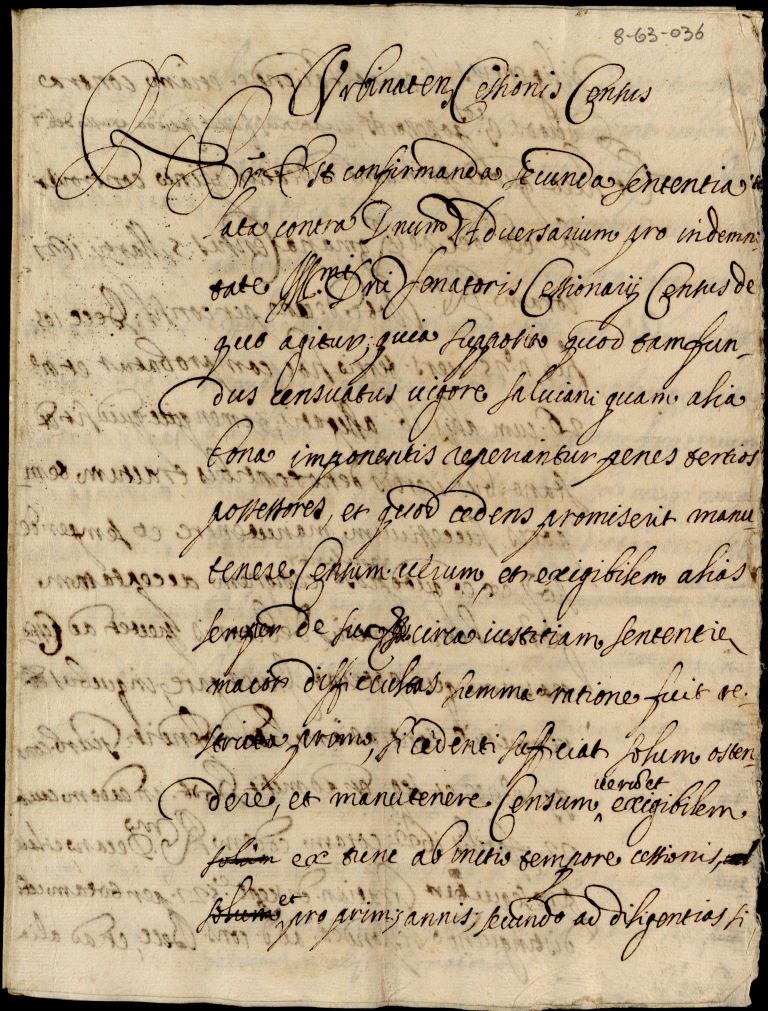 8-63-036
Urbinaten Cessionis Census
Est confirmanda secunda sententia
lata contra Dnum Adversarium pro indemni
tate Illmi Dni Senatoris Cessionarij Census de
quo agitur, quia supposito quod tam fun-
dus censuatus vigore salviani quam alia
bona imponentis reperiantur penes tertios
possessores, et quod cedens promiserit manu
tenere Censum verum, et exigibilem alias
semper de suo circa iustitiam sententie
maior difficultas summa ratione fuit re-
stricta primo, si cedenti sufficiat solum osten-
dere, et manutenere Censum verū et exigibilem
solum ex tunc ab initio tempore cessionis,
solum et pro primis annis, secundo ad diligentias si